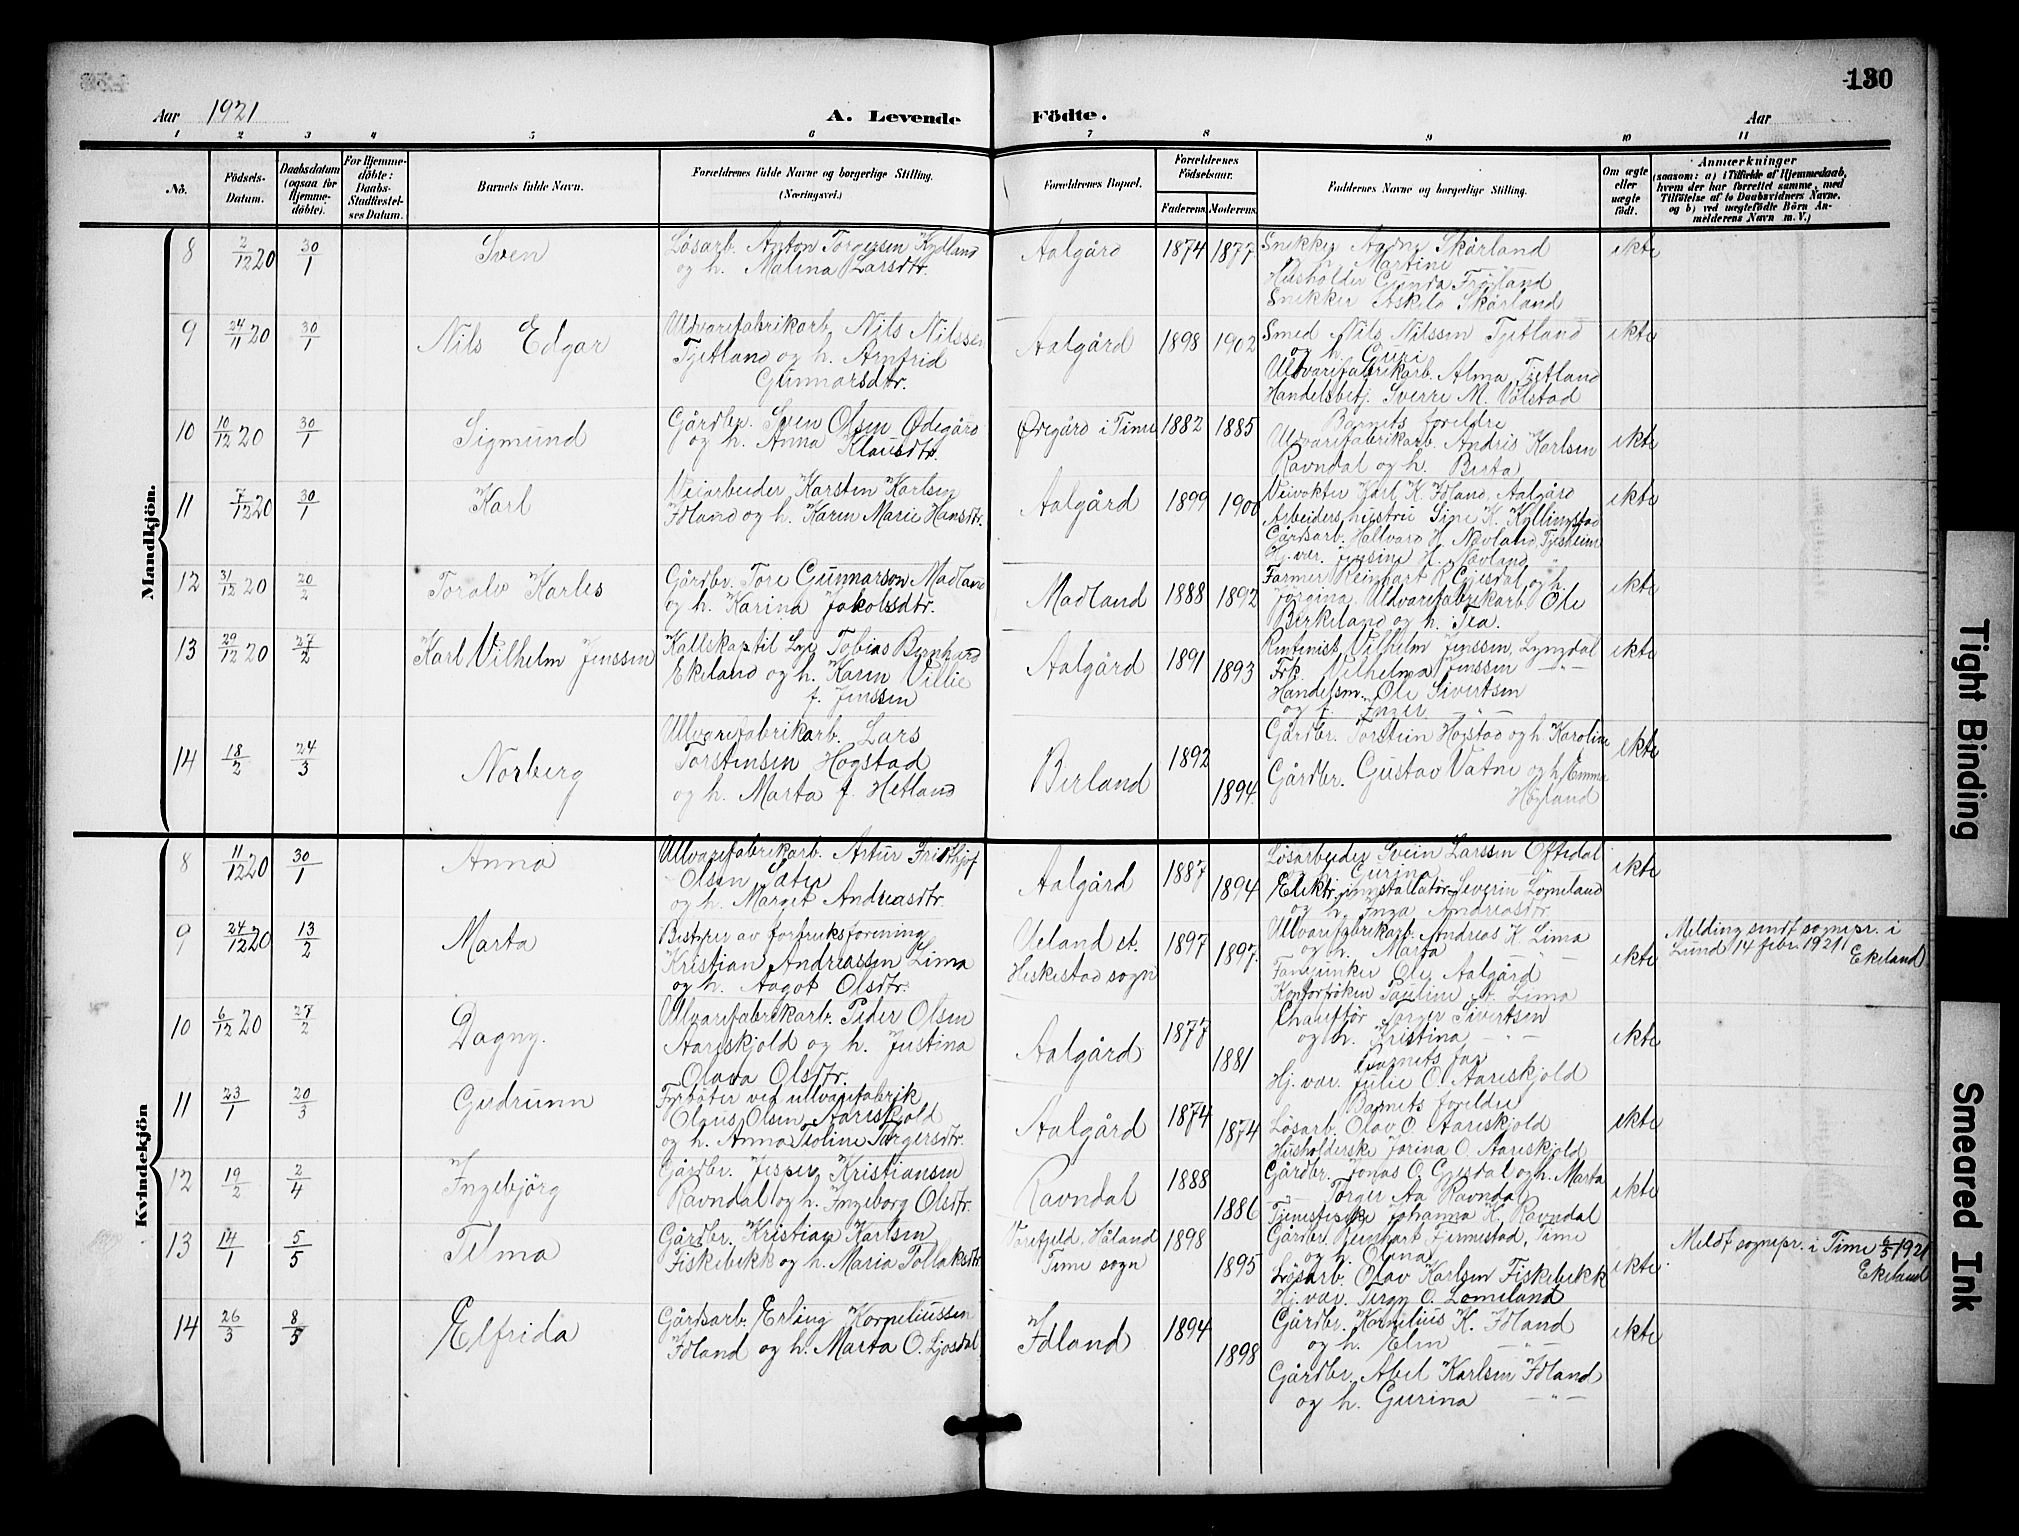 130
Aar 1921
A. Levende Födte.
Aar
1 2 3 4 5 6 7 8 9 10 11
No.
Födsels-Datum.
Daabsdatum (ogsaa for Hjemmedöbte).
For Hjemmedöbte: Daabs-Stadfæstelses Datum.
Barnets fulde Navn.
Forældrenes fulde Navne og borgerlige Stilling. (Næringsvei.)
Forældrenes Bopæl.
Forældrenes Födselsaar.
Faderens. Moderens.
Faddernes Navne og borgerlige Stilling.
Om ægte eller uægte födt.
Anmærkninger
(saasom: a) i Tilfælde af Hjemmedaab, hvem der har forrettet samme, med Tilföielse af to Daabsvidners Navne. og b) ved uægtefödte Börn Anmelderens Navn m. V.)
Mandkjön.
8 2/12 20 30/1 Sven
Løsarb. Anton Torgersen Kydland
og h. Malina Larsdtr.
Aalgård 1874 1877
Snekker Aadne Skårland
og h. Martine
Husholder Gunda Frøyland
Snekker Askild Skårland
ekte
9 24/11 20 30/1 Nils Edgar
Uldvarefabrikarb. Nils Nilssen
Tjetland og h. Arnfrid
Gunnarsdtr.
Aalgård 1898 1902
Smed Nils Nilssen Tjetland
og h. Guri
Uldvarefabrikarb. Alma Tjetland
Handelsbetj. Sverre M. Vølstad
ekte
10 10/12 20 30/1 Sigmund
Gårdbr. Sven Olsen Ødegård
og h. Anna Klausdtr.
Ødegård i Time 1882 1885
Barnets foreldre
Uldvarefabrikarb. Andris Karlsen
Ravndal og h. Berta
ekte
11 7/12 20 30/1 Karl
Veiarbeider Karsten Karlsen
Idland og h. Karen Marie Hansdtr.
Aalgård 1899 1900
Veivokter Karl K. Idland, Aalgård
Arbeiders hustru Sine K. Kyllingstad
Gårdsarb. Hallvard H. Nevland, Tjesheim
Hj. vær. Jensine H. Nevland
ekte
12 31/12 20 20/2 Toralv Karles
Gårdbr. Tore Gunnarson Madland
og h. Karina Jakobsdtr.
Madland 1888 1892
Farmer Reinhart R. Gjesdal og h.
Jorgina, Uldvarefabrikarb. Ole
Birkeland og h. Tea.
ekte
13 29/12 20 27/2 Karl Vilhelm Jenssen
Kallskap til Lye Tobias Bernhard
Ekeland og h. Karen Villie
f. Jenssen
Aalgård 1891 1893
Rentenist Vilhelm Jenssen, Lyngdal
Frk. Vilhelma Jenssen —"—
Handelsm. Ole Sivertsen
og f. Inger —"—
ekte
14 18/2 24/3 Norberg
Ullvarefabrikarb. Lars
Torstensen Høgstad
og h. Marta f. Hetland
Berland 1892 1894
Gårdbr. Torstein Høgstad og h. Karoline
Gårdbr. Gustav Vatne og h. Emma
Høyland
ekte
Kvindekjön
8 11/12 20 30/1 Anna
Ullvarefabrikarb. Artur Fridthjof
Olsen Sater
og h. Marget Andreasdtr.
Aalgård 1887 1894
Løsarbeider Svein Larssen Oftedal
og h. Gurina
Elektr. innstallatør Severin Lomeland
og h. Inga Andreasdtr.
ekte
9 24/12 20 13/2 Marta
Bestyrer av forbruksforening
Kristian Andreassen Lima
og h. Aagot Olsdtr.
Ueland st.
Heskestad sogn 1897 1897
Ullvarefabrikarb. Andreas K. Lima
og h. Marta —"—
Fanejunker Ole Aalgård
Kontorfrøken Pauline A. Lima
ekte
Melding sendt sognepr. i
Lund 14 febr. 1921
Ekeland
10 6/12 20 27/2 Dagny.
Ullvarefabrikarb. Peder Olsen
Aareskjold og h. Justina
Olava Olsdtr.
Aalgård 1877 1881
Chauffør Torger Sivertsen
og h. Kristina —"—
Barnets far
Hj. vær. Julie O. Aareskjold
ekte
11 23/1 20/3 Gudrunn
Fyrbøter ved ullvarefabrik
Olaus Olsen Aareskjold
og h. Anna Teoline Torgersdtr.
Aalgård 1874 1874
Barnets foreldre
Løsarb. Olav O. Aareskjold
Husholderske Jorina O. Aareskjold
ekte
12 19/2 2/4 Ingebjörg
Gårdbr. Jesper Kristiansen
Ravndal og h. Ingeborg Olsdtr.
Ravndal 1888 1886
Gårdbr. Jonas O. Gjesdal og h. Marta
Torger Aa Ravndal
Tjenestepike Johanna K. Ravndal
ekte
13 14/1 5/5 Telma
Gårdbr. Kristian Karlsen
Fiskebekk og h. Maria Tollaksdtr.
Håland
Time sogn 1898 1895
Gårdbr. Reinhart Fermestad, Time
og h. Olena —"—
Løsarb. Olav Karlsen Fiskebekk
Hj. vær. Tergn O. Lomeland
ekte.
Meldt sognepr. i Time 6/5 1921
Ekeland
14 26/3 8/5 Elfrida
Gårdsarb. Erling Korneliussen
Idland og h. Marta O. Ljosdal
Idland 1894 1898
Gårdbr. Kornelius K. Idland
og h. Elen —"—
Gårdbr. Abel Karlsen Idland
og h. Gurina —"—
ekte
Tight Binding
Smeared Ink